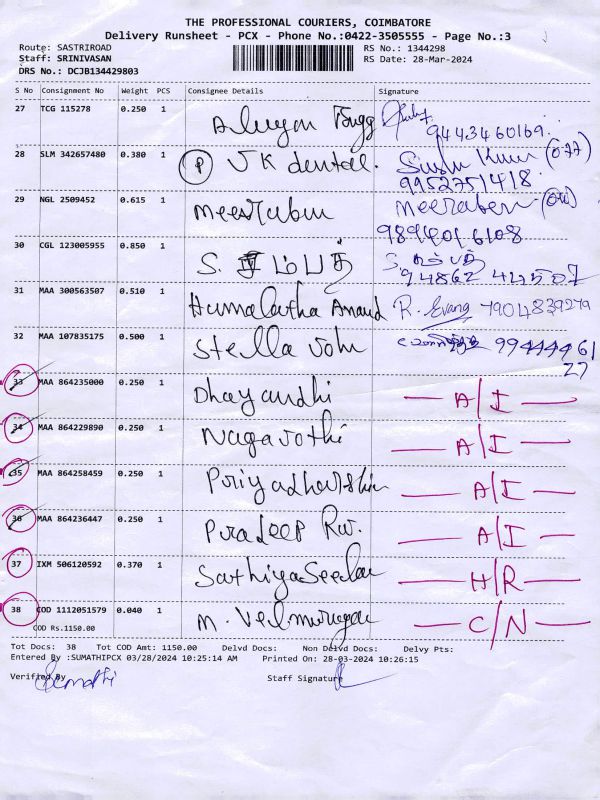 THE PROFESSIONAL COURIERS, COIMBATORE
Delivery Runsheet - PCX - Phone No.:0422-3505555 - Page No.:3
Route: SASTRIROAD RS No.: 1344298
Staff: SRINIVASAN RS Date: 28-Mar-2024
DRS No.: DCJB134429803
S No Consignment No Weight PCS Consignee Details Signature
27 TCG 115278 0.250 1
9443460169.
28 SLM 342657480 0.380 1 P JK dental.
9952751418.
29 NGL 2509452 0.615 1 Meerabun Meeraben
9894016108
30 CGL 123005955 0.850 1
31 MAA 300563507 0.510 1 Humalatha Anand R. Evang 7904839279
32 MAA 107835175 0.500 1 Stella John
33 MAA 864235000 0.250 1 Dhayandhi A/I
34 MAA 864229890 0.250 1 Nagajothi A/I
35 MAA 864258459 0.250 1 Priyadharshin A/I
36 MAA 864236447 0.250 1 Pradeep A/I
37 IXM 506120592 0.370 1 Sathiyaseelan H/R
38 COD 1112051579 0.040 1 M. Velmurugan C/N
COD Rs.1150.00
Tot Docs: 38 Tot COD Amt: 1150.00 Delvd Docs: Non Delvd Docs: Delvy Pts:
Entered By :SUMATHIPCX 03/28/2024 10:25:14 AM Printed On: 28-03-2024 10:26:15
Verified By Sumathi Staff Signature